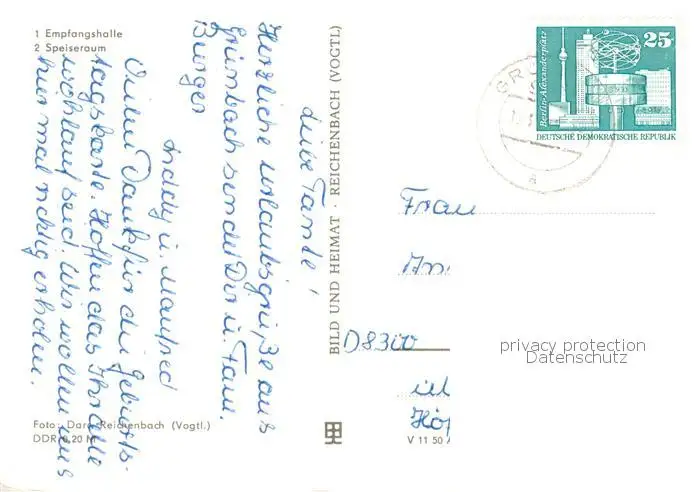 1 Empfangshalle
2 Speiseraum
Liebe Tante!
Herzliche Urlaubsgrüße aus
Grünbach sendet Dir u. Fam.
Burger
Addy u. Manfred
Vielen Dank für die Geburts-
tagskarte. Hoffen das Ihr alle
wohlauf seid. Wir wollen uns
hier mal richtig erholen.
Foto: Darr Reichenbach (Vogtl.)
DDR 0,20 M
BILD UND HEIMAT · REICHENBACH (VOGTL)
V 11 50
Berlin-Alexanderplatz
25
DEUTSCHE DEMOKRATISCHE REPUBLIK
GR
a
Frau
D8300
privacy protection
Datenschutz